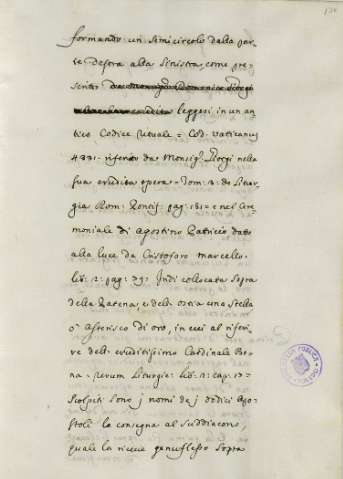 formando un semicircolo dalla par-
te destra alla sinistra, come pre-
scritto leggesi in un an-
tico Codice Rituale = Cod. Vaticanus
4731 = riferito da Monsig.r Giorgi nella
sua erudita opera = Tom: 3: de Litur-
gia Rom: Pontif: pag: 181 = e nel Cere-
moniale di Agostino Patricio dato
alla luce da Cristoforo Marcello =
lib: 2: pag: 39: Indi collocata sopra
della Patena, e dell' ostia una Stella
o' Asterisco di oro, in cui al riferi-
re dell' eruditissimo Cardinale Bo-
na = Rerum Liturgic: lib: 1: cap: 25 =
Scolpiti sono j nomi de j dodici Apo-
stoli la consegna al Suddiacono,
quale la riceve genuflesso sopra